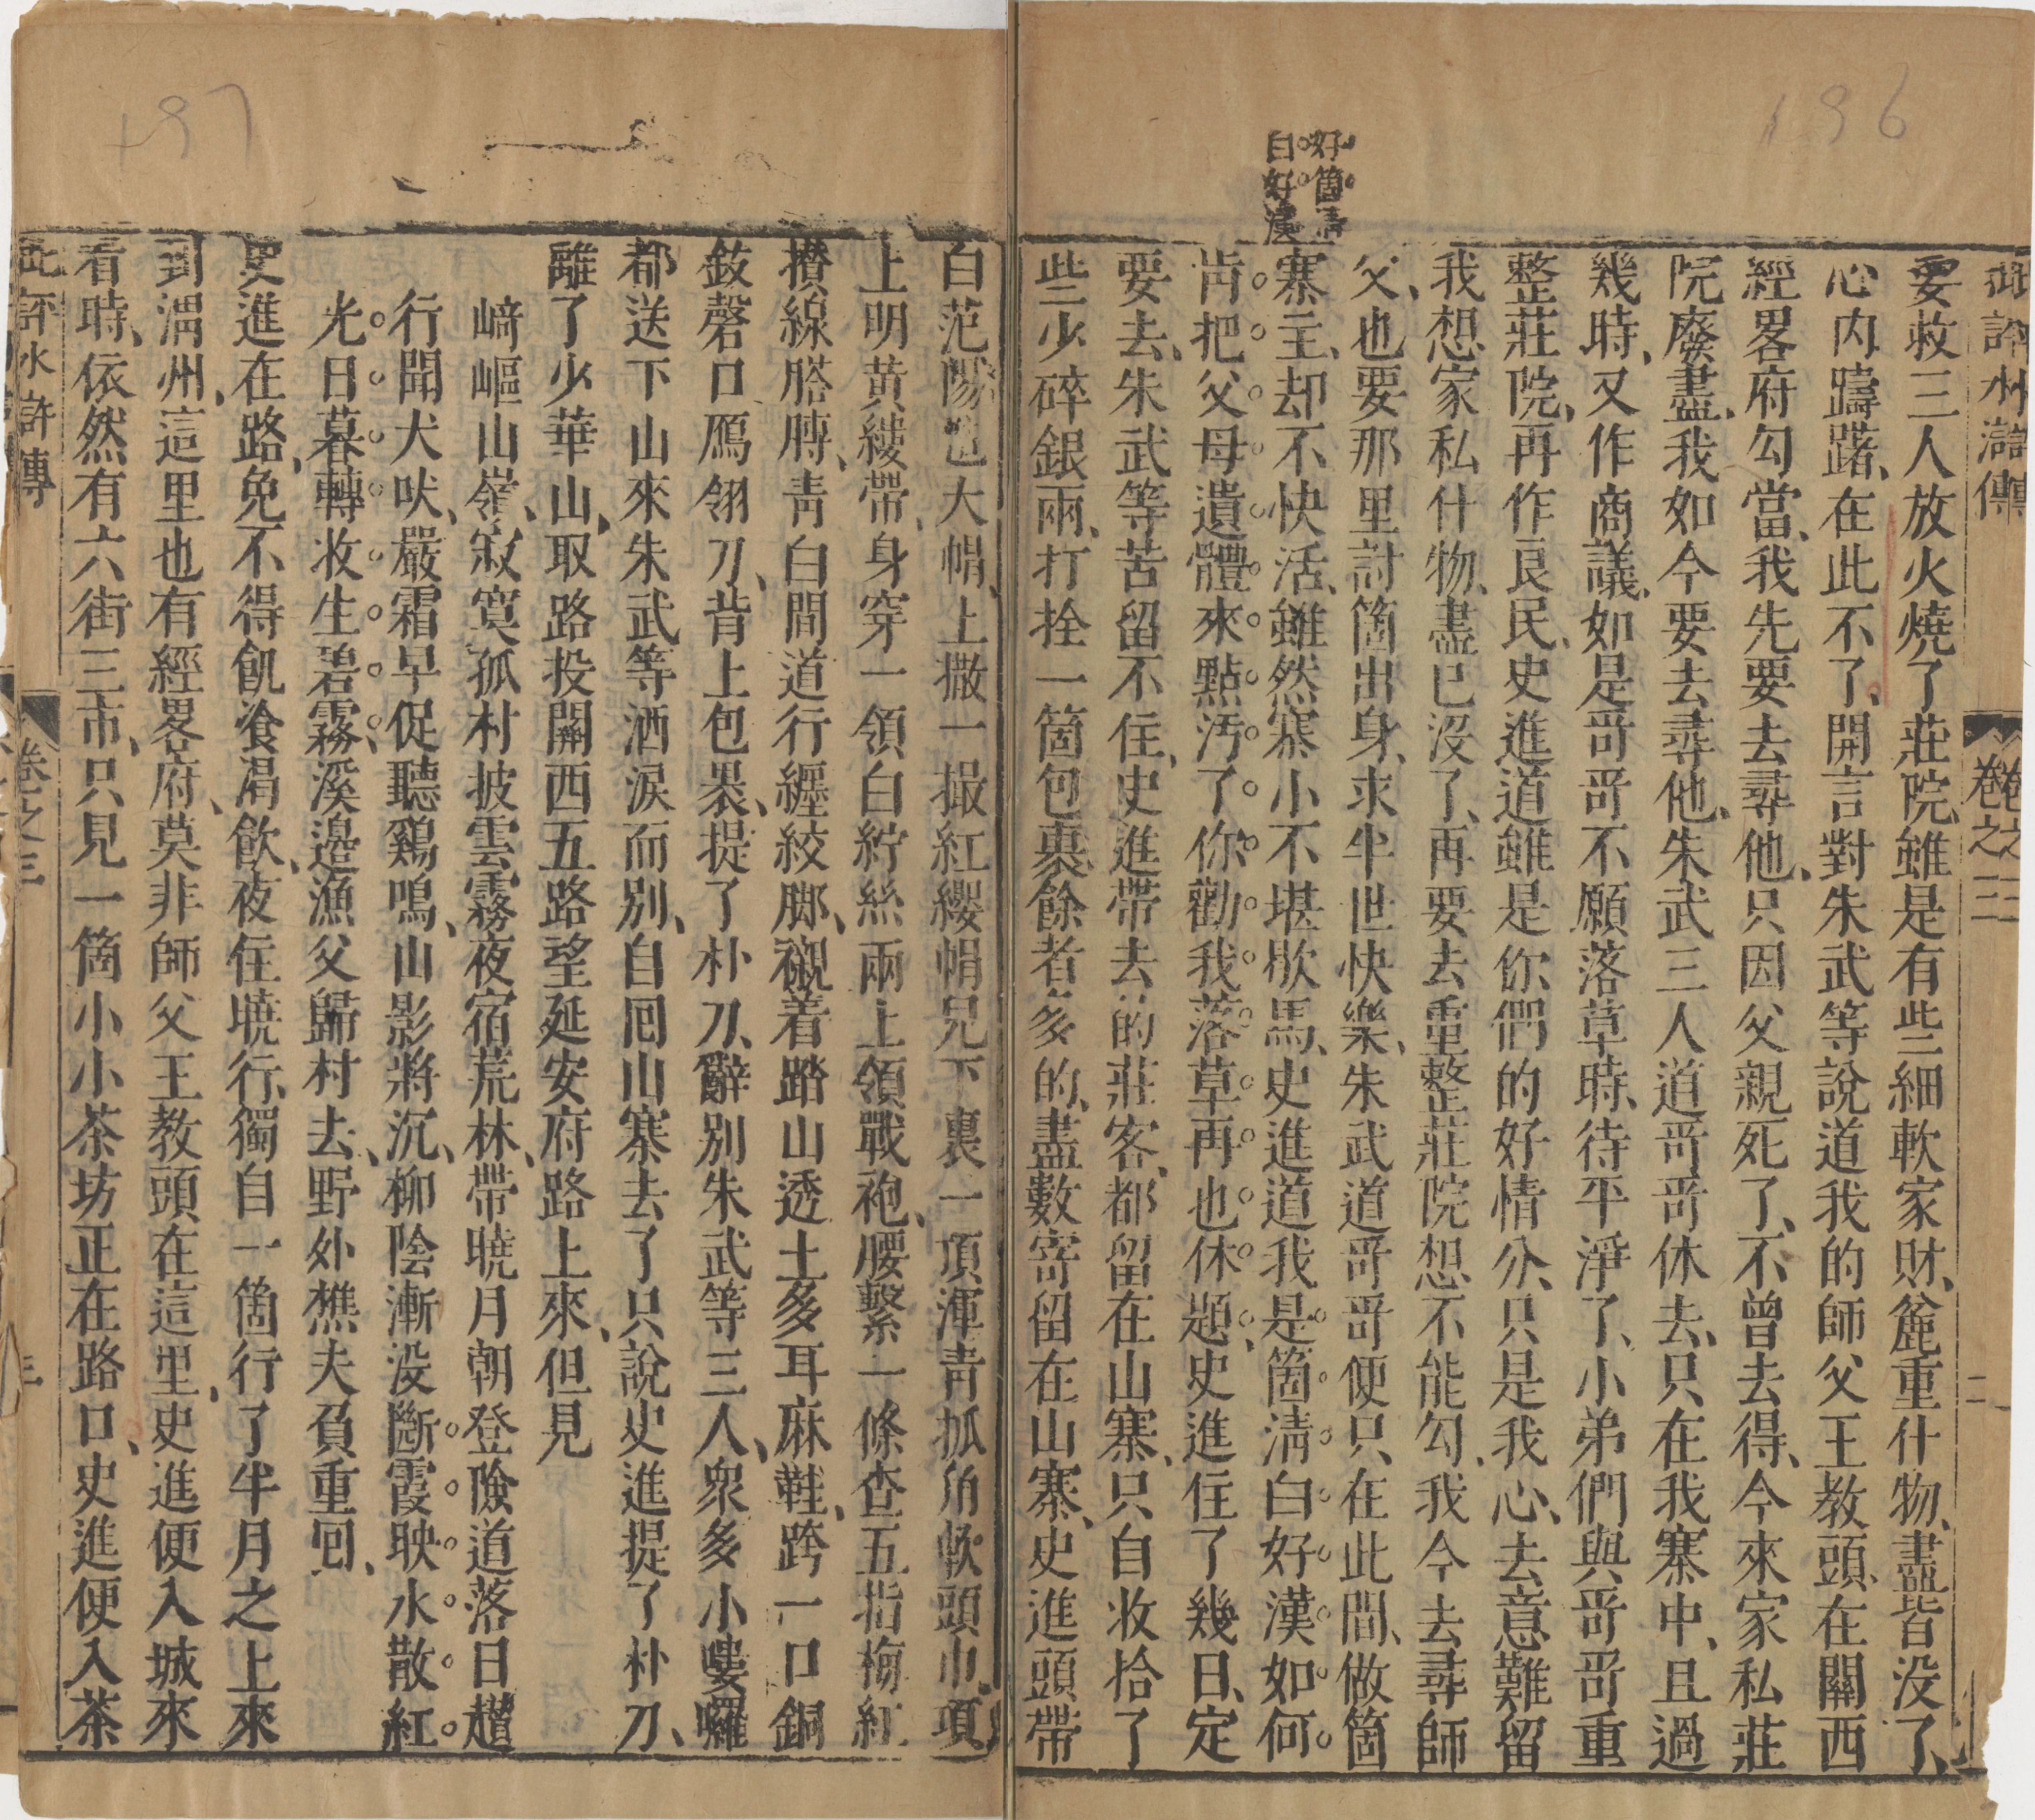 196
好箇清
白好漢
批評水滸傳
卷之三
二
要救三人放火燒了莊院、雖是有些細軟家財、麄重什物、盡皆没了、
心内躊躇、在此不了、開言對朱武等說道我的師父王教頭、在關西
經畧府勾當、我先要去尋他、只因父親死了、不曾去得、今來家私莊
院廢盡、我如今要去尋他、朱武三人道哥哥休去、只在我寨中、且過
幾時、又作商議、如是哥哥不願落草時、待平淨了、小弟們與哥哥重
整莊院、再作良民、史進道雖是你們的好情分、只是我心去意難留
我想家私什物、盡已没了、再要去重整莊院想不能勾、我今去尋師
父、也要那里討箇出身、求半世快樂、朱武道哥哥便只在此間、做箇
寨主、却不快活、雖然寨小不堪歇馬、史進道我是箇清白好漢如何
肯把父母遺體來點汚了你勸我落草再也休題、史進住了幾日、定
要去、朱武等苦留不住、史進帶去的莊客、都留在山寨、只自收拾了
些少碎銀兩、打拴一箇包裹、餘者多的、盡數寄留在山寨、史進頭帶
197
白范陽毡大帽、上撒一撮紅纓帽兒下裹一頂渾青抓角軟頭巾、項
上明黄縷帶、身穿一領白紵絲兩上領戰袍、腰繫一條查五指梅紅
攅線膡膊、青白間道行纒絞脚、襯着踏山透土多耳麻鞋、跨一口銅
鈸磬口鴈翎刀、背上包裹、提了朴刀、辭别朱武等三人、衆多小嘍囉
都送下山來朱武等洒淚而别、自囘山寨去了只說史進提了朴刀、
離了少華山、取路投關西五路望延安府路上來、但見
崎嶇山嶺、寂寞孤村披雲霧夜宿荒林、帶曉月朝登險道落日趲
行聞犬吠、嚴霜早促聽鷄鳴、山影將沉、柳陰漸没斷霞映水散紅
光日暮轉收生碧霧、溪邉漁父歸村去、野外樵夫負重囘、
史進在路、免不得飢飡渴飲、夜住曉行、獨自一箇行了半月之上來
到渭州、這里也有經畧府、莫非師父王教頭在這里、史進便入城來
看時、依然有六街三市、只見一箇小小茶坊正在路口、史進便入茶
批評水滸傳
卷之三
三